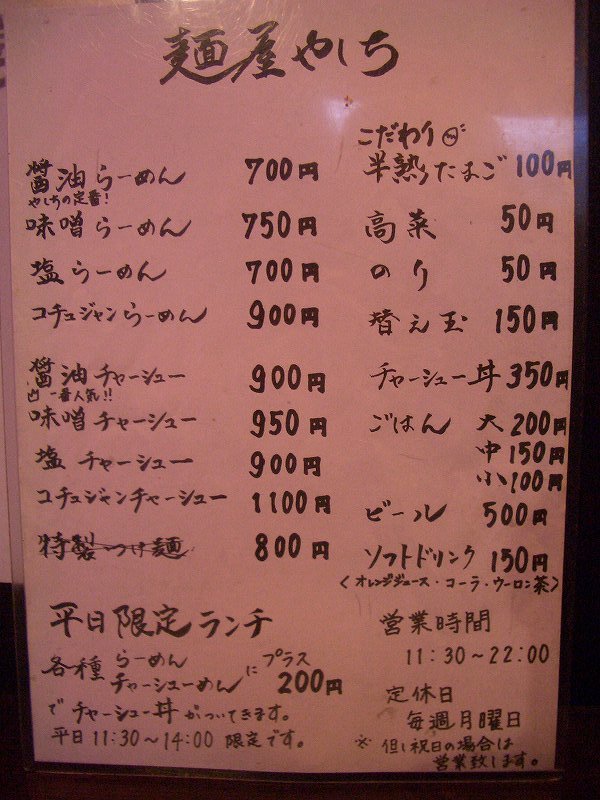 麺屋やしち
醤油らーめん 700円
やしちの定番!
味噌らーめん 750円
塩らーめん 700円
コチュジャンらーめん 900円
醤油チャーシュー 900円
一番人気!!
味噌チャーシュー 950円
塩チャーシュー 900円
コチュジャンチャーシュー 1100円
特製つけ麺 800円
こだわり
半熟たまご 100円
高菜 50円
のり 50円
替え玉 150円
チャーシュー丼 350円
ごはん 大 200円
中 150円
小 100円
ビール 500円
ソフトドリンク 150円
〈オレンジジュース・コーラ・ウーロン茶〉
平日限定ランチ
各種 らーめん
チャーシューめん に プラス 200円
で チャーシュー丼 がついてきます。
平日 11:30〜14:00 限定です。
営業時間
11:30〜22:00
定休日
毎週月曜日
※ 但し祝日の場合は
営業致します。